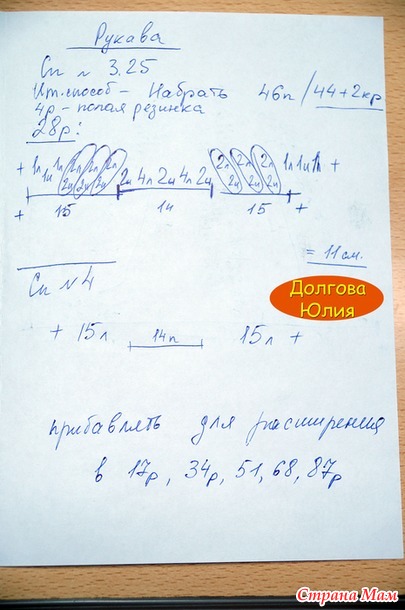 Рукава
Сп N 3.25
Ит. способ - Набрать 46п / 44+2кр
4р - полая резинка
28р:
+ 1л 1и 1л 2л 2и 2л 2и 2л 2и 2и 4л 2и 4л 2и 2л 2и 2л 2и 2л 2и 1л 1и 1л +
+ 15 14 15 +
= 11 см.
Сп N 4
Долгова
Юлия
+ 15л 14п 15л +
прибавлять для расширения
в 17р, 34р, 51, 68, 87р
Страна Мам